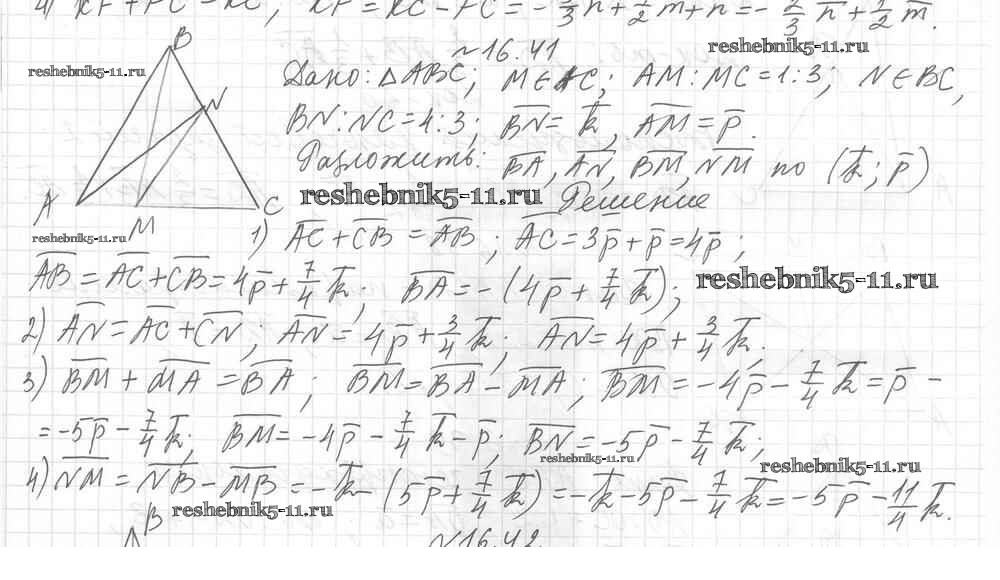 4) KF + FC = KC; KF = KC - FC = -2/3 n + 1/2 m + n = -2/3 n̅ + 1/2 m̅.
№16.41
reshebnik5-11.ru
B
reshebnik5-11.ru
Дано: △ABC; M∈AC; AM:MC=1:3; N∈BC,
N
BN:NC=4:3; B̅N̅=k̅, A̅M̅=p̅.
Разложить: B̅A̅, A̅N̅, B̅M̅, N̅M̅ по (k̅; p̅)
A
M
C
reshebnik5-11.ru
Решение
reshebnik5-11.ru
1) A̅C̅+C̅B̅=A̅B̅; A̅C̅=3p̅+p̅=4p̅;
A̅B̅=A̅C̅+C̅B̅=4p̅+7/4 k̅; B̅A̅=-(4p̅+7/4 k̅);
reshebnik5-11.ru
2) A̅N̅=A̅C̅+C̅N̅; A̅N̅=4p̅+3/4 k̅; A̅N̅=4p̅+3/4 k̅.
3) B̅M̅+M̅A̅=B̅A̅; B̅M̅=B̅A̅-M̅A̅; B̅M̅=-4p̅-7/4 k̅=p̅-
=-5p̅-7/4 k̅; B̅M̅=-4p̅-7/4 k̅-p̅; B̅N̅=-5p̅-7/4 k̅;
reshebnik5-11.ru
reshebnik5-11.ru
4) N̅M̅=N̅B̅-M̅B̅=-k̅-(5p̅+7/4 k̅)=-k̅-5p̅-7/4 k̅=-5p̅-11/4 k̅.
B
reshebnik5-11.ru
№16.42